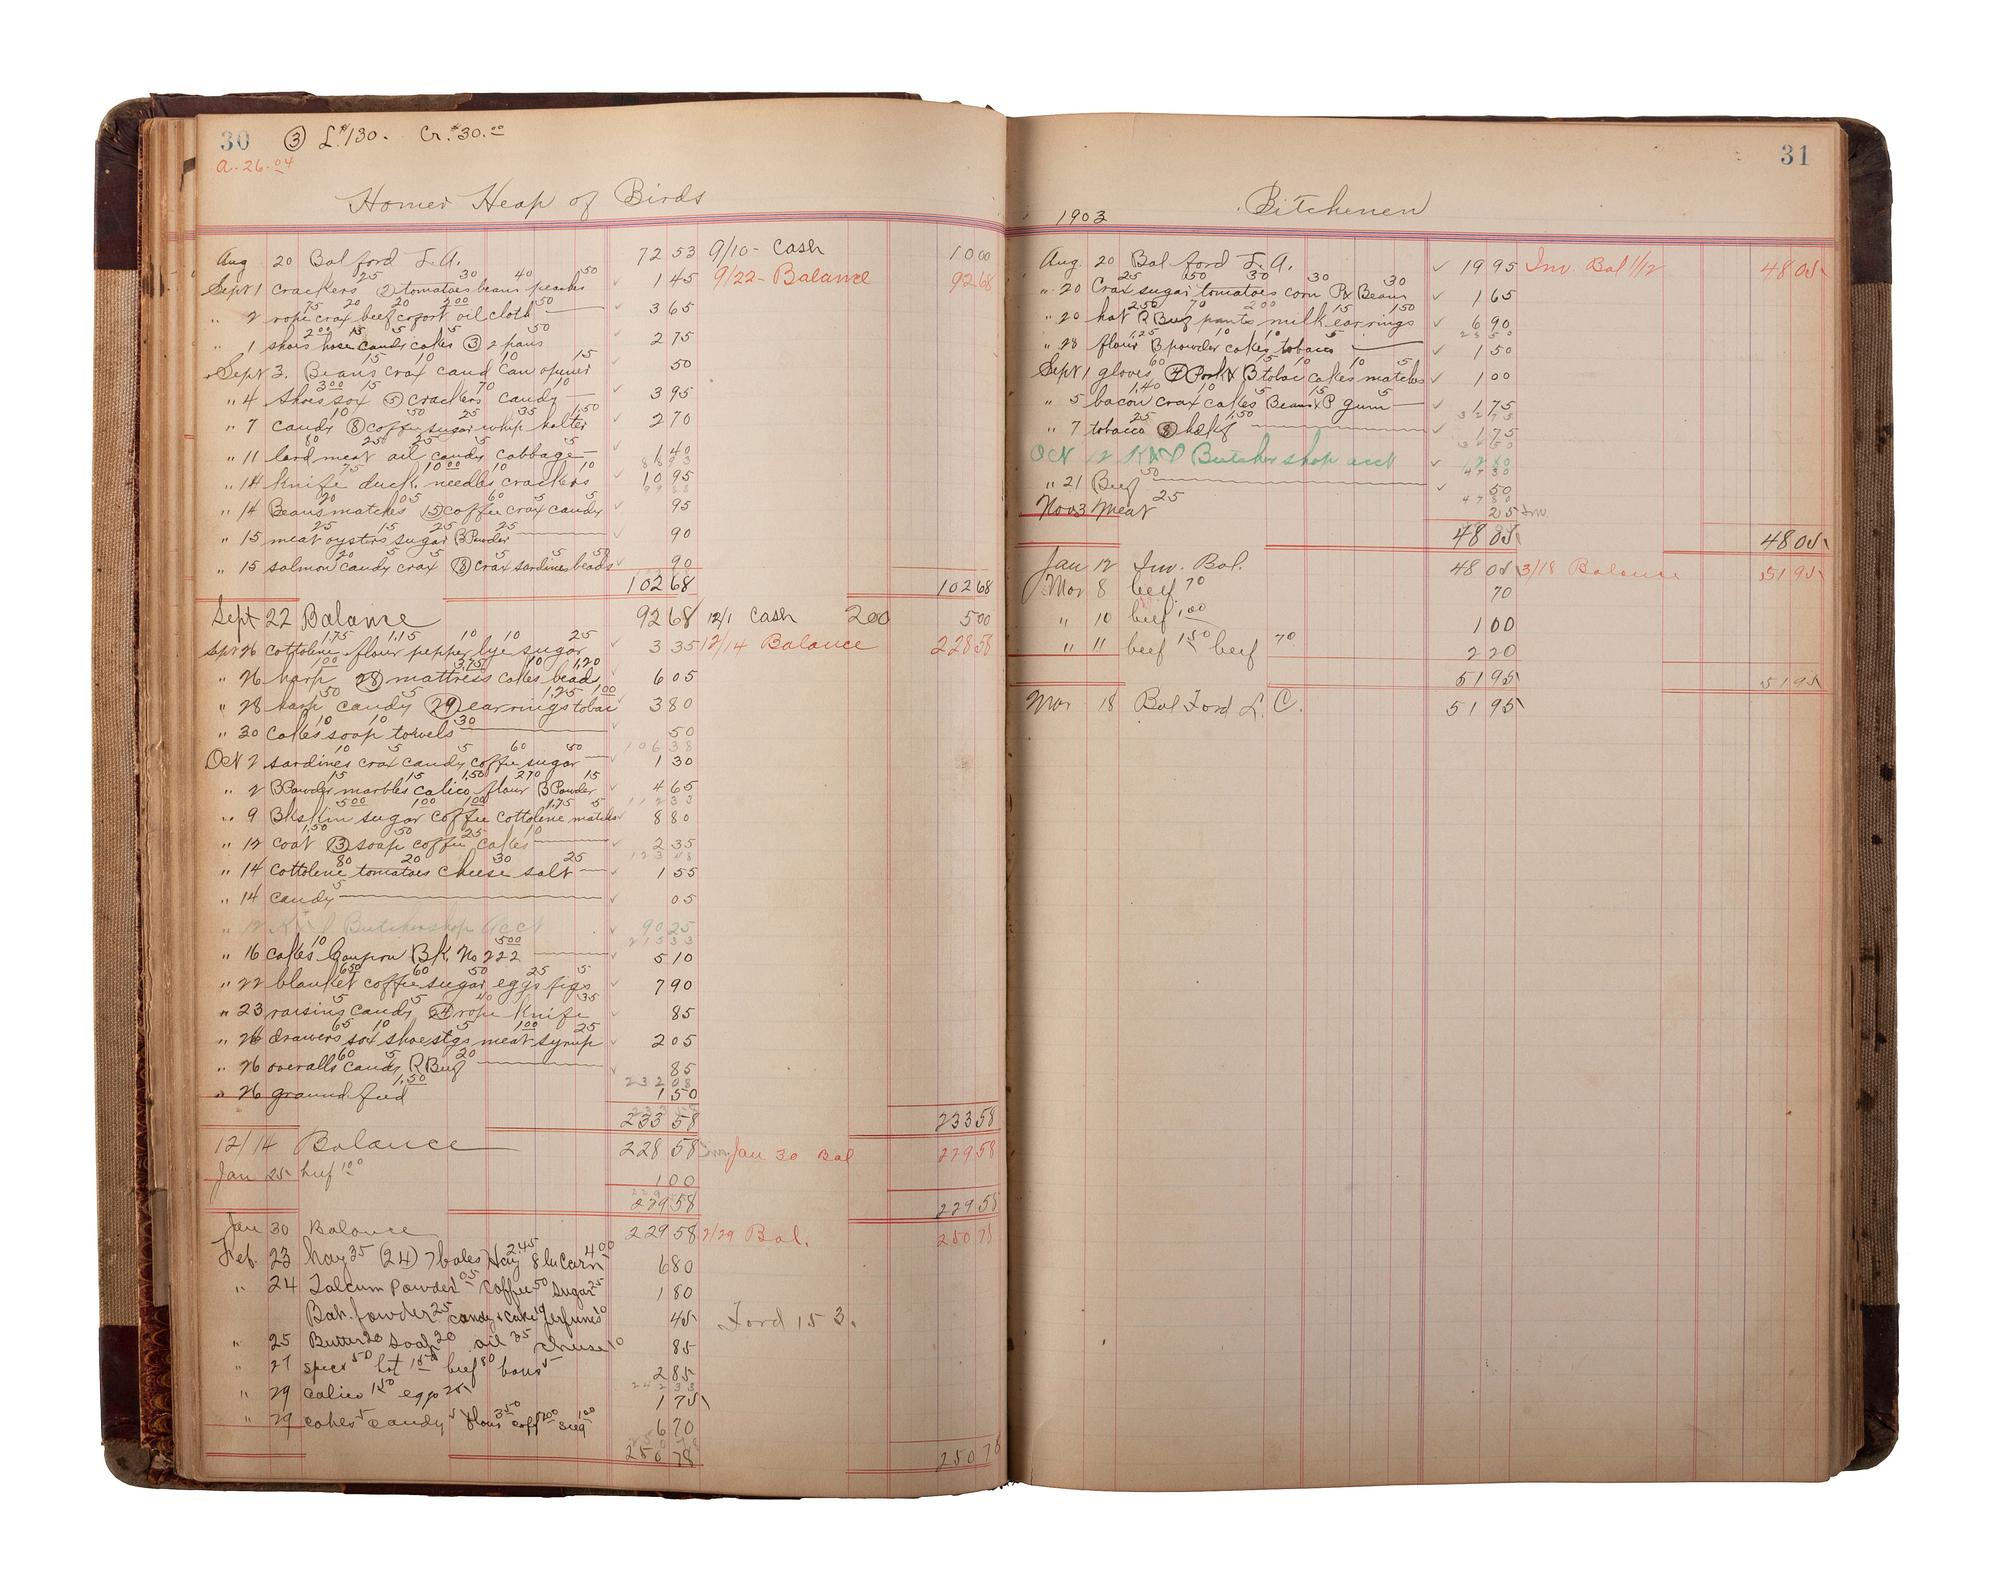 30 ③ L.$130. Cr. $30.00
a. 26. 04
Homer Heap of Birds
Aug 20 Bal ford L.A. 72 53 9/10 - Cash 10 00
Sept 1 crackers 25 ② tomatoes 30 beans 40 peaches 50 1 45 9/22 - Balance 92 68
" 2 rope 75 crax 20 beef 20 2.00 oil cloth 50 3 65
" 1 shoes 2.00 hose 15 candy 5 cakes 5 ③ 2 pans 50 2 75
Sept 3. Beans 15 crax 10 cand 10 Can opener 15 50
" 4 Shoes 3.00 sox 15 ⑤ crackers 70 candy 10 3 95
" 7 candy 10 ⑧ coffee 50 sugar 25 whip 35 halter 1.50 2 70
" 11 lard 80 meat 25 oil 25 candy 5 cabbage 5 1 40
" 14 knife 75 duck. 10.00 needles 10 crackers 10 10 95
" 14 Beans 20 matches 05 ⑮ coffee 60 crax 5 candy 5 95
" 15 meat 25 oysters 15 sugar 25 B Powder 25 90
" 15 salmon 20 candy 5 crax 5 ⑱ crax 5 sardines 5 beads 50 90
102 68 102 68
Sept 22 Balance 92 68 12/1 Cash 200 5 00
Sept 26 cottolene 1.75 flour 1.15 pepper 10 lye 10 sugar 25 3 35 12/14 Balance 228 58
" 26 harp 1.00 ㉘ mattress 3.75 cakes 10 bead 1.20 6 05
" 28 harp 50 candy 5 ㉙ earrings 1.25 tobac 1.00 3 80
" 30 cakes 10 soap 10 towels 30 50
106 38
Oct 2 sardines 10 crax 5 candy 5 coffee 60 sugar 50 1 30
" 2 B Powder 15 marbles 15 calico 1.50 flour 2 70 B Powder 15 4 65
112 33
" 9 Bkskin 5.00 sugar 1.00 coffee 1.00 cottolene 1.75 matches 5 8 80
" 12 coat 1.50 ⑬ soap 50 coffee 25 cakes 10 2 35
123 48
" 14 cottolene 80 tomatoes 20 cheese 30 salt 25 1 55
" 14 candy 5 05
" 12 K & D Butchershop acct 90 25
215 33
" 16 cakes 10 Coupon BK. No 222 5.00 5 10
" 22 blanket 6 50 coffee 60 sugar 50 eggs 25 figs 5 7 90
" 23 raisins 5 candy 5 ㉔ rope 40 knife 35 85
" 26 drawers 65 sox 10 shoestgs 5 meat 1.00 syrup 25 2 05
" 26 overalls 60 candy 5 R Beef 20 85
232 08
" 26 ground feed 1.50 1 50
233 58 233 58
12/14 Balance 228 58 Inv. Jan 30 Bal 229 58
Jan 25 beef 1 00 1 00
229 58 229 58
Jan 30 Balance 229 58 2/29 Bal. 250 78
Feb. 23 hay 35 (24) 7 bales Hay 2.45 8 bu Corn 4 00 6 80
" 24 Talcum Powder 05 Coffee 50 Sugar 25 1 80
Bak. Powder 25 candy & cake 10 Perfume 10 45 Ford 153.
" 25 Butter 20 Soap 20 oil 35 cheese 10 85
" 27 specs 50 hat 1 50 beef 80 5 2 85
242 33
" 29 calico 1 50 eggs 25 1 75
" 29 cakes 5 candy 5 flour 3 50 coff 2 00 sug 1 00 6 70
250 78 250 78
31
1903 Bitchenen
Aug. 20 Bal ford L.A. 19 95 Inv. Bal 1/12 48 05
" 20 Crax 25 sugar 50 tomatoes 30 corn 30 P & Beans 30 1 65
" 20 hat 2 50 R Beef 70 pants 2 00 milk 15 earrings 1 50 6 90
28 50
" 28 flour 1.25 B powder 10 cakes 10 tobacco 5 1 50
Sept 1 gloves 60 ④ Pork & B 15 tobac 10 cakes 10 matches 5 1 00
" 5 bacon 1.40 crax 10 cakes 5 Beans & P 15 gum 5 1 75
32 75
" 7 tobacco 25 ⑧ hdkf 1.50 1 75
34 50
Oct 12 K & D Butchershop acct 12 80
47 30
" 21 Beef 50 50
47 80
Nov 3 Meat 25 25 Inv.
48 05 48 05
Jan 12 Inv. Bal. 48 05 3/18 Balance 51 95
Mar 8 beef 70 70
" 10 beef 1.00 1 00
" 11 beef 1 50 beef 70 2 20
51 95 51 95
Mar 18 Bal Ford L. C. 51 95